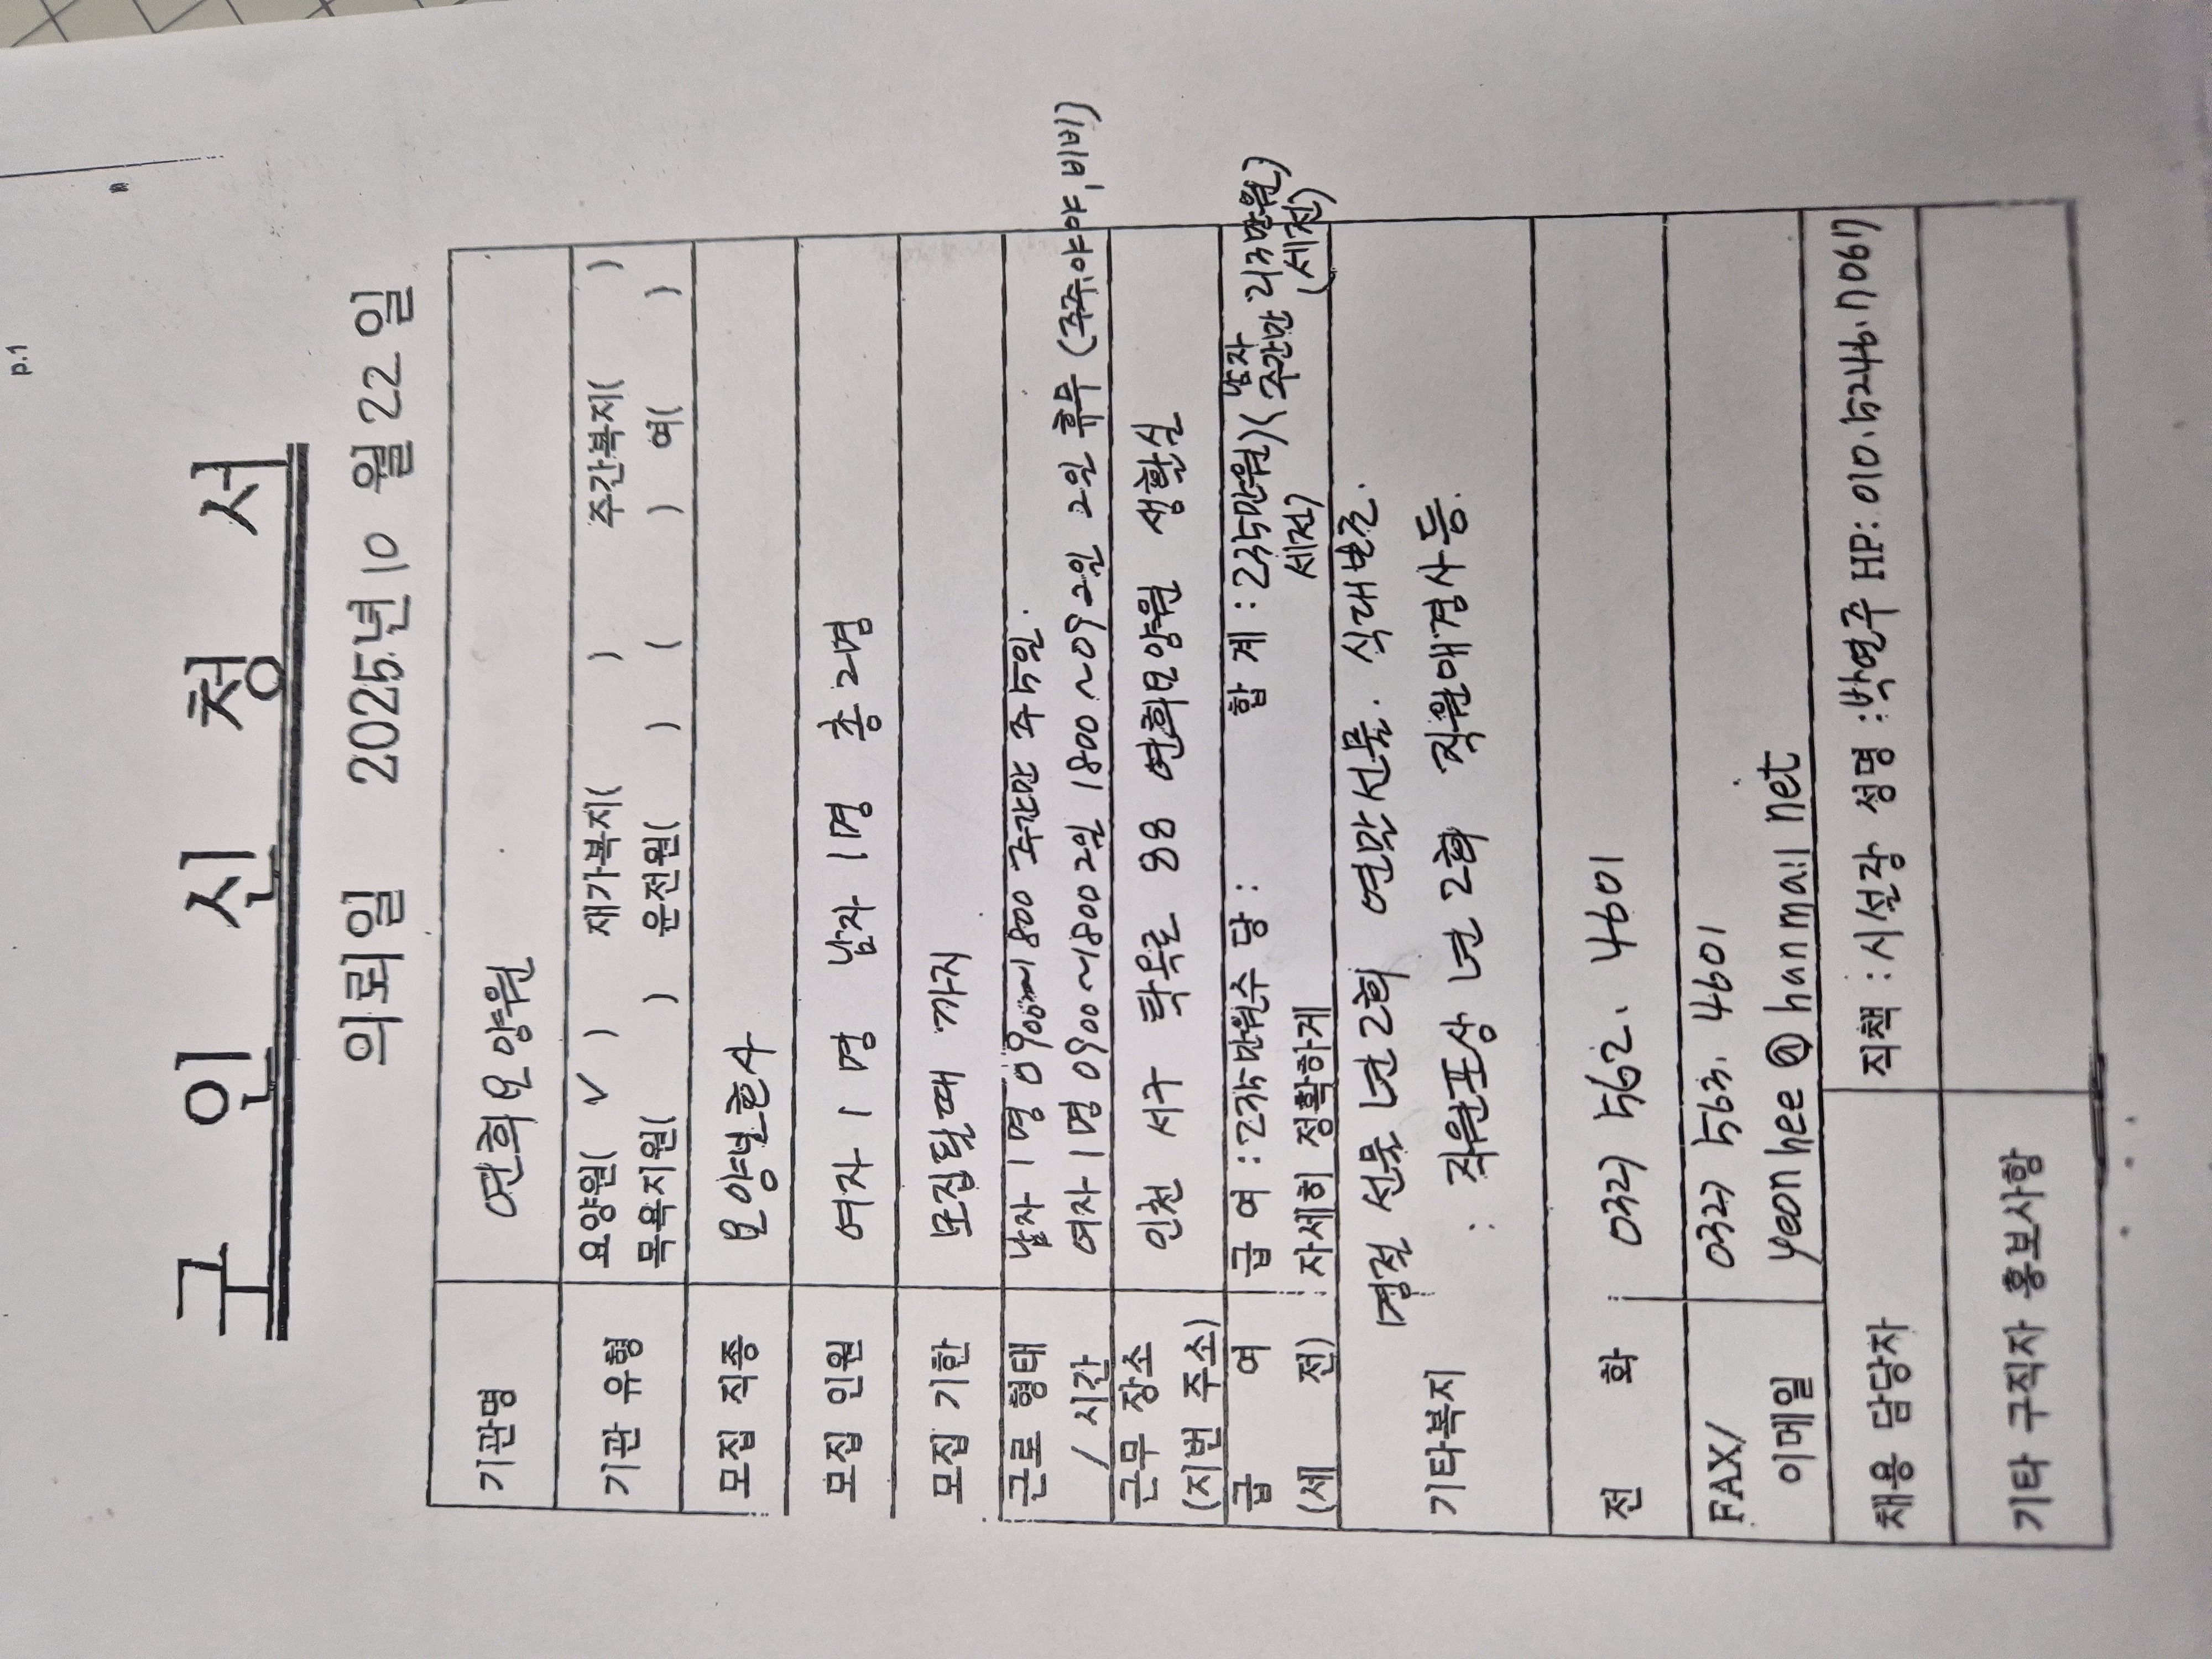 p.1
구 인 신 청 서
의뢰일 2025년 10 월 22 일
기관명 연희요양원
기관 유형 요양원( ✓ ) 재가복지( ) 주간복지( )
목욕지원( ) 운전원( ) ( ) 여( )
모집 직종 요양보호사
모집 인원 여자 1명 남자 1명 총 2명
모집 기한 모집될때 까지
근로 형태 남자 1명 0900~1800 주간만 주 5일.
/ 시간 여자 1명 0900~1800 2일 1800~09 2일 2일 휴무 (주주,야야,비비)
근무 장소 인천 서구 탁옥로 88 연희요양원 생활실
(지번 주소)
급 여 급 여 : 235만원 수 당 : 합 계 : 235만원) (남자 주간만 213만원)
(세 전) 자세히 정확하게 세전) (세전)
기타복지 명절 선물 년 2회 연말선물. 식대보조.
: 직원포상 년 2회 직원애경사 등.
전 화 032) 562. 4601
FAX/ 032) 563. 4601
이메일 yeonhee@hanmail.net
채용 담당자 직책 : 시설장 성명 : 박연주 HP: 010.5246.7067
기타 구직자 홍보사항